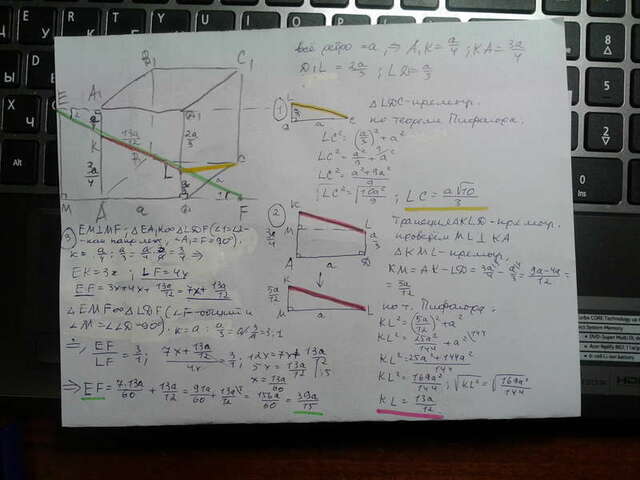 всё ребро = a, ⇒ A₁K = a/4 ; KA = 3a/4
D₁L = 2a/3 ; LD = a/3
B₁
C₁
E
A₁
D₁
13a/12
2a/3
K
3a/4
L
C
M
A
a
F
①
L
a/3
a
C
△LDC - прямоуг.
по теореме Пифагора:
LC² = (a/3)² + a²
LC² = a²/9 + a²
LC² = a²+9a²/9
LC² = √10a²/9 ; LC = a√10/3
②
K
L
M
3a/4
a/3
A
a
D
K
5a/12
M
a
L
Трапеция AKLD - прямоуг.
проведём ML ⊥ KA
△KML - прямоуг.
KM = AK - LD = 3a/4 - a/3 = 9a-4a/12 =
= 5a/12
по т. Пифагора:
KL² = (5a/12)² + a²
KL² = 25a²/144 + a²
KL² = 25a²+144a²/144
KL² = 169a²/144 ; √KL² = √169a²/144
KL = 13a/12
③ EM⊥MF; △EA₁K∾△LDF (∠1=∠2-
EK = 3x ; LF = 4x
EF = 3x + 4x + 13a/12 = 7x + 13a/12
△EMF∾△LDF (∠F - общий и
∠M = ∠LDF = 90°). k = a : a/3 = a·3/a = 3:1
⇒, EF/LF = 3/1; 7x + 13a/12 / 4x = 3/1; 12x = 7x + 13a/12
5x = 13a/12 | :5
x = 13a/60
⇒ EF = 7·13a/60 + 13a/12 = 91a/60 + 13a/12 = 156a/60 = 39a/15